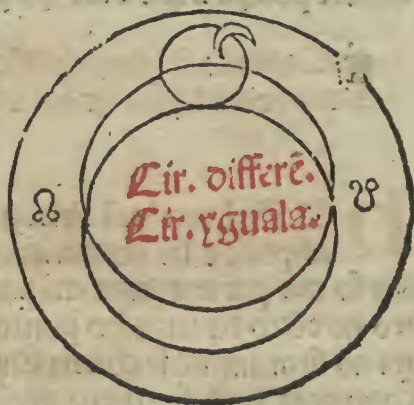 Cir. differẽ.
Cir. yguala.
☊ ☋